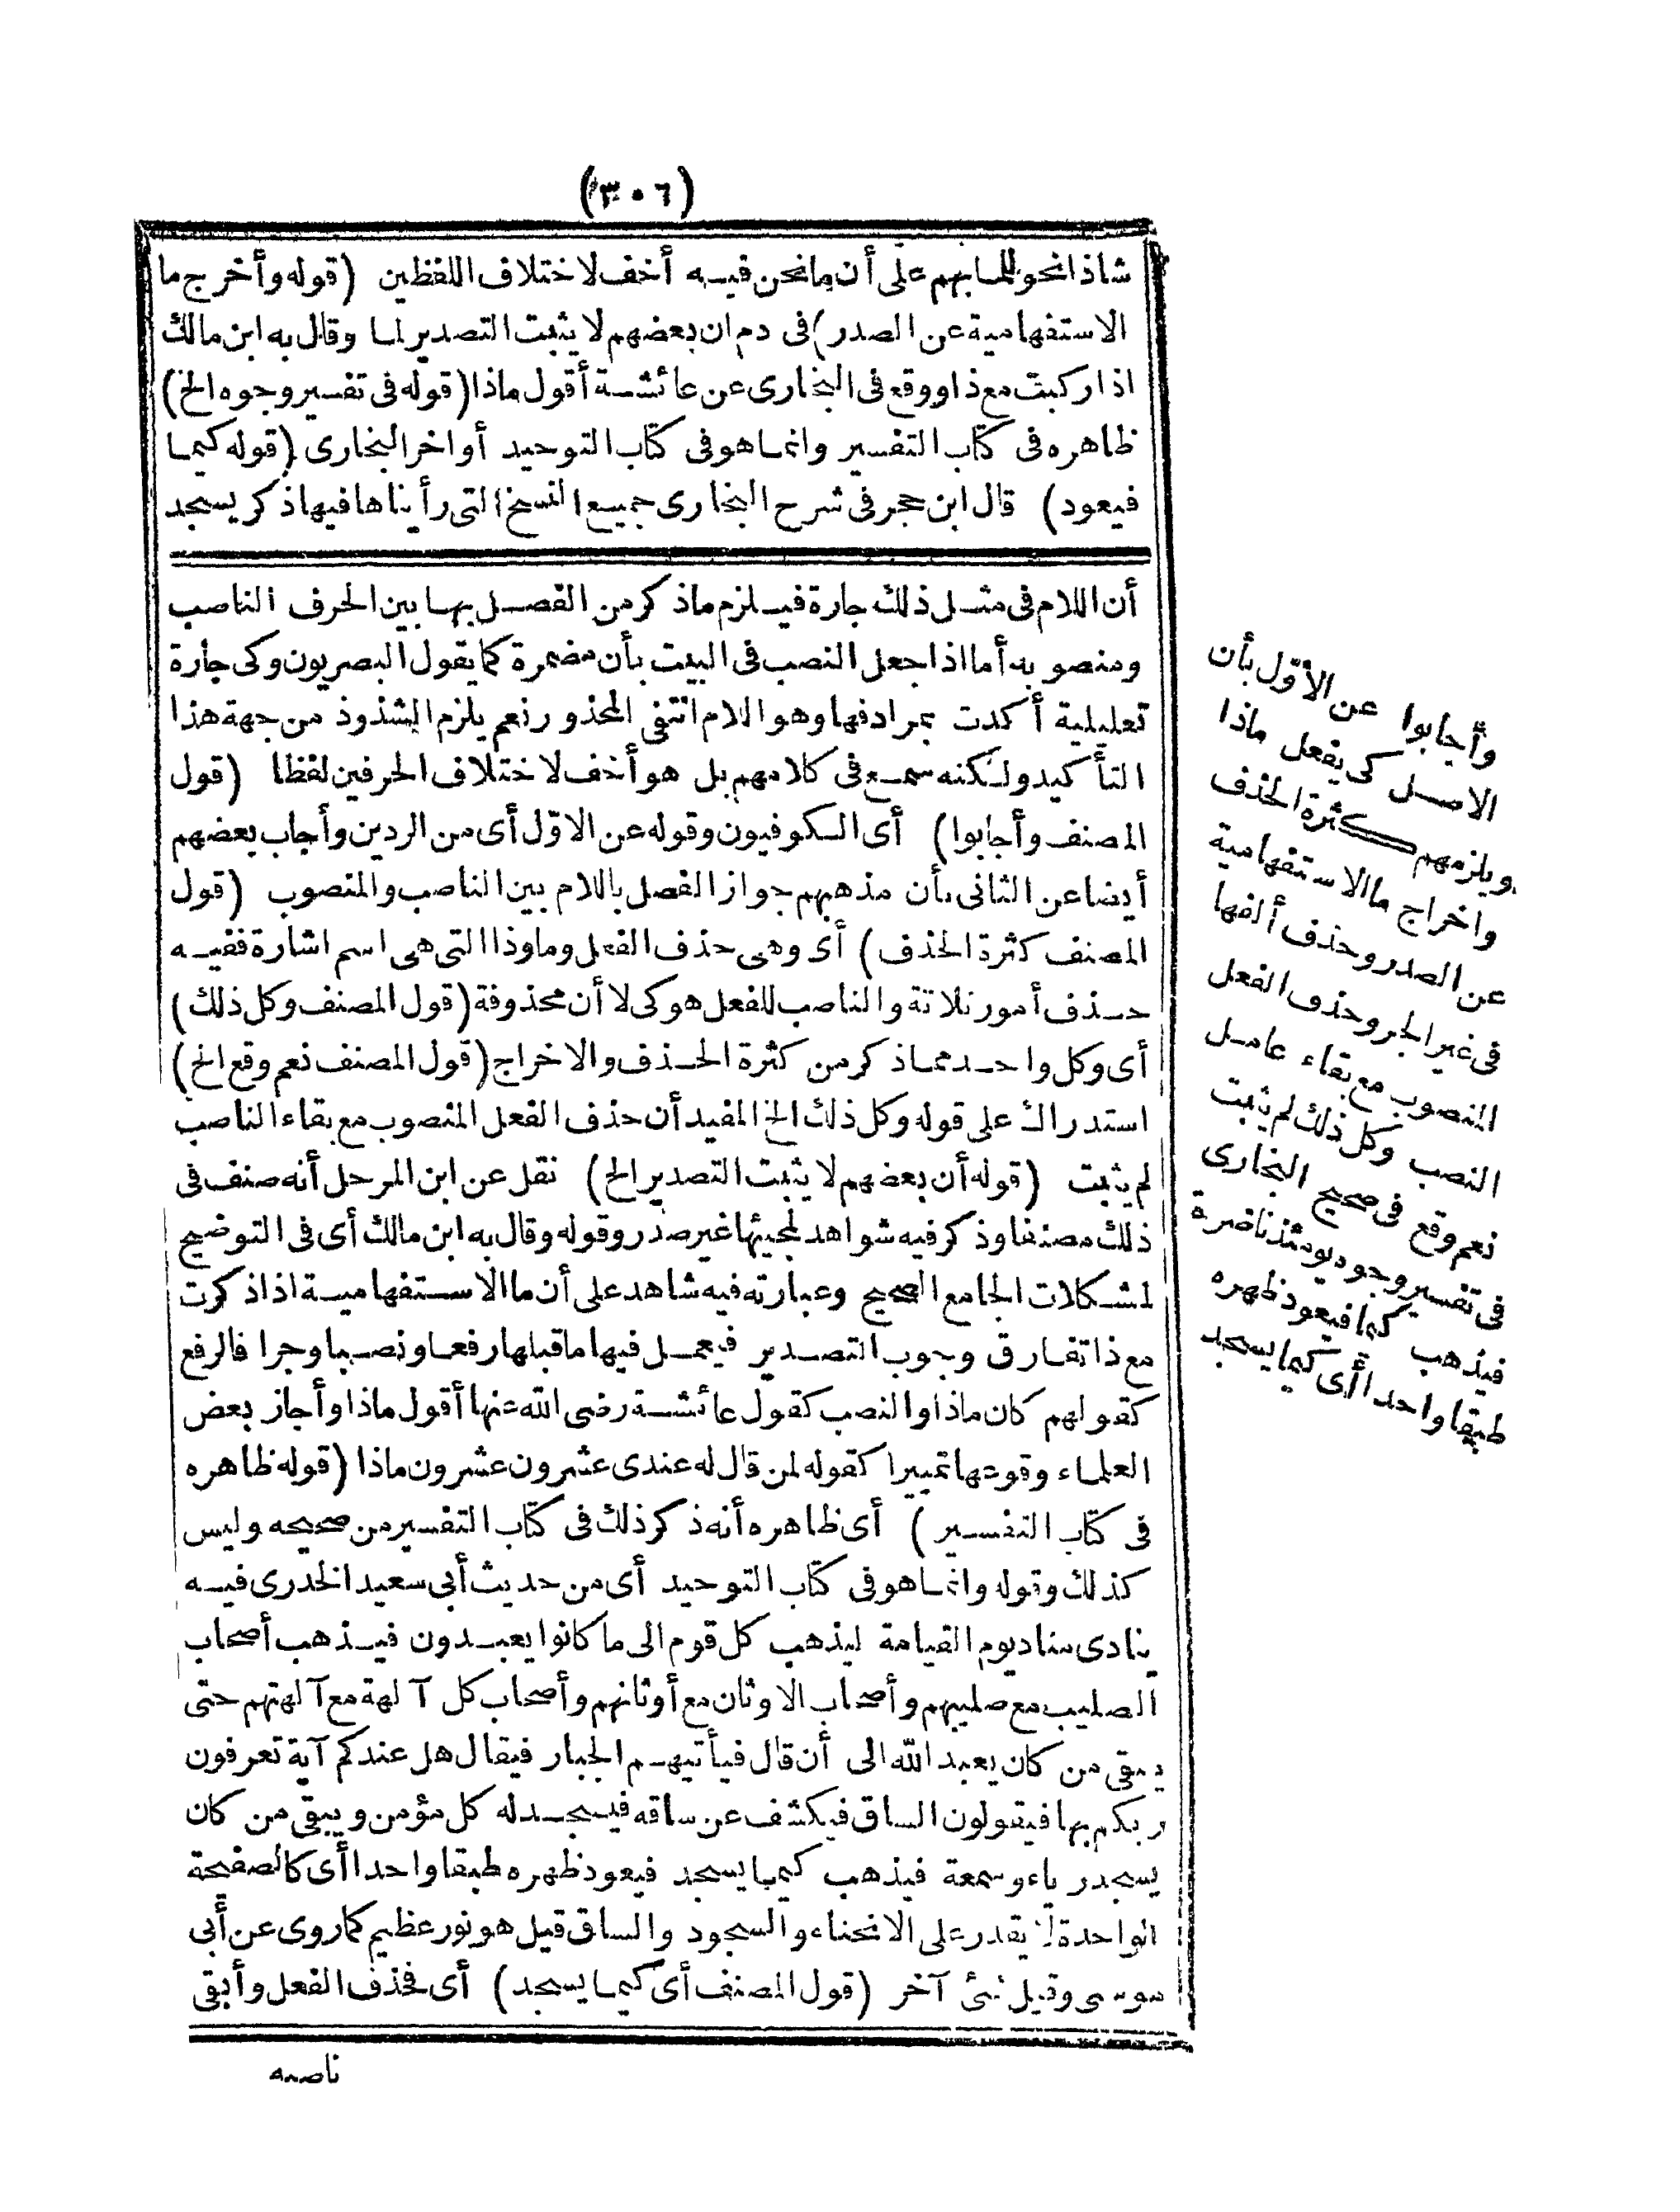 (٣٠٦)
شاذا نحو للما بهم على أن ما نحن فيه أخف لاختلاف اللفظين (قوله وأخرج ما
الاستفهامية عن الصدر) فى دم ان بعضهم لا يثبت التصدير لما وقال به ابن مالك
اذا ركبت مع ذا ووقع فى البخارى عن عائشة أقول ماذا (قوله فى تفسير وجوه الخ)
ظاهره فى كتاب التفسير وانما هو فى كتاب التوحيد أواخر البخارى (قوله كيما
فيعود) قال ابن حجر فى شرح البخارى جميع النسخ التى رأيناها فيها ذكر يسجد
أن اللام فى مثل ذلك جارة فيلزم ما ذكر من الفصل بها بين الحرف الناصب
ومنصوبه أما اذا جعل النصب فى البيت بأن مضمرة كما يقول البصريون وكى جارة
تعليلية أكدت بمرادفها وهو اللام انتفى المحذور نعم يلزم الشذوذ من جهة هذا
التأكيد ولكنه سمع فى كلامهم بل هو أخف لاختلاف الحرفين لفظا (قول
المصنف وأجابوا) أى الكوفيون وقوله عن الاوّل أى من الردين وأجاب بعضهم
أيضا عن الثانى بأن مذهبهم جواز الفصل باللام بين الناصب والمنصوب (قول
المصنف كثرة الحذف) أى وهى حذف الفعل وما وذا التى هى اسم اشارة ففيه
حذف أمور ثلاثة والناصب للفعل هو كى لا أن محذوفة (قول المصنف وكل ذلك)
أى وكل واحد مما ذكر من كثرة الحذف والاخراج (قول المصنف نعم وقع الخ)
استدراك على قوله وكل ذلك الخ المفيد أن حذف الفعل المنصوب مع بقاء الناصب
لم يثبت (قوله أن بعضهم لا يثبت التصدير الخ) نقل عن ابن المرحل أنه صنف فى
ذلك مصنفا وذكر فيه شواهد لمجيئها غير صدر وقوله وقال به ابن مالك أى فى التوضيح
لمشكلات الجامع الصحيح وعبارته فيه شاهد على أن ما الاستفهامية اذا ذكرت
مع ذا تفارق وجوب التصدير فيعمل فيها ما قبلها رفعا ونصبا وجرا فالرفع
كقولهم كان ماذا والنصب كقول عائشة رضى الله عنها أقول ماذا وأجاز بعض
العلماء وقوعها تمييزا كقوله لمن قال له عندى عشرون عشرون ماذا (قوله ظاهره
فى كتاب التفسير) أى ظاهره أنه ذكر ذلك فى كتاب التفسير من صحيحه وليس
كذلك وقوله وانما هو فى كتاب التوحيد أى من حديث أبى سعيد الخدرى فيه
ينادى مناد يوم القيامة ليذهب كل قوم الى ما كانوا يعبدون فيذهب أصحاب
الصليب مع صليبهم وأصحاب الاوثان مع أوثانهم وأصحاب كل آلهة مع آلهتهم حتى
يبقى من كان يعبد الله الى أن قال فيأتيهم الجبار فيقال هل عندكم آية تعرفون
ربكم بها فيقولون الساق فيكشف عن ساقه فيسجد له كل مؤمن ويبقى من كان
يسجد رياء وسمعة فيذهب كيما يسجد فيعود ظهره طبقا واحدا أى كالصفحة
الواحدة لا يقدر على الانحناء والسجود والساق قيل هو نور عظيم كما روى عن أبى
موسى وقيل شئ آخر (قول المصنف أى كيما يسجد) أى فحذف الفعل وأبقى
ناصبه
وأجابوا عن الأوّل بأن
الاصل كى يفعل ماذا
ويلزمهم كثرة الحذف
واخراج ما الاستفهامية
عن الصدر وحذف ألفها
فى غير الجر وحذف الفعل
المنصوب مع بقاء عامل
النصب وكل ذلك لم يثبت
نعم وقع فى صحيح البخارى
فى تفسير وجوه يومئذ ناضرة
فيذهب كيما فيعود ظهره
طبقا واحدا أى كيما يسجد